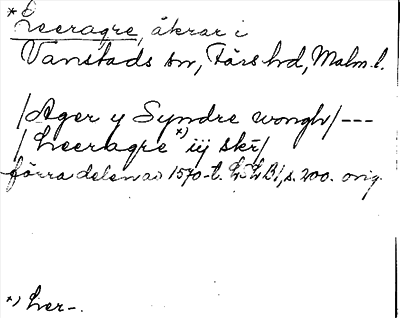 * Leeragre, åkrar i
Vanstads sn, Färs hd, Malm. l.
/Ager y Syndre wongh/ ---
/Leeragre *) iij skr/
förra delen av 1570-t. LLBí, s. 200. orig.
*) Lver-.